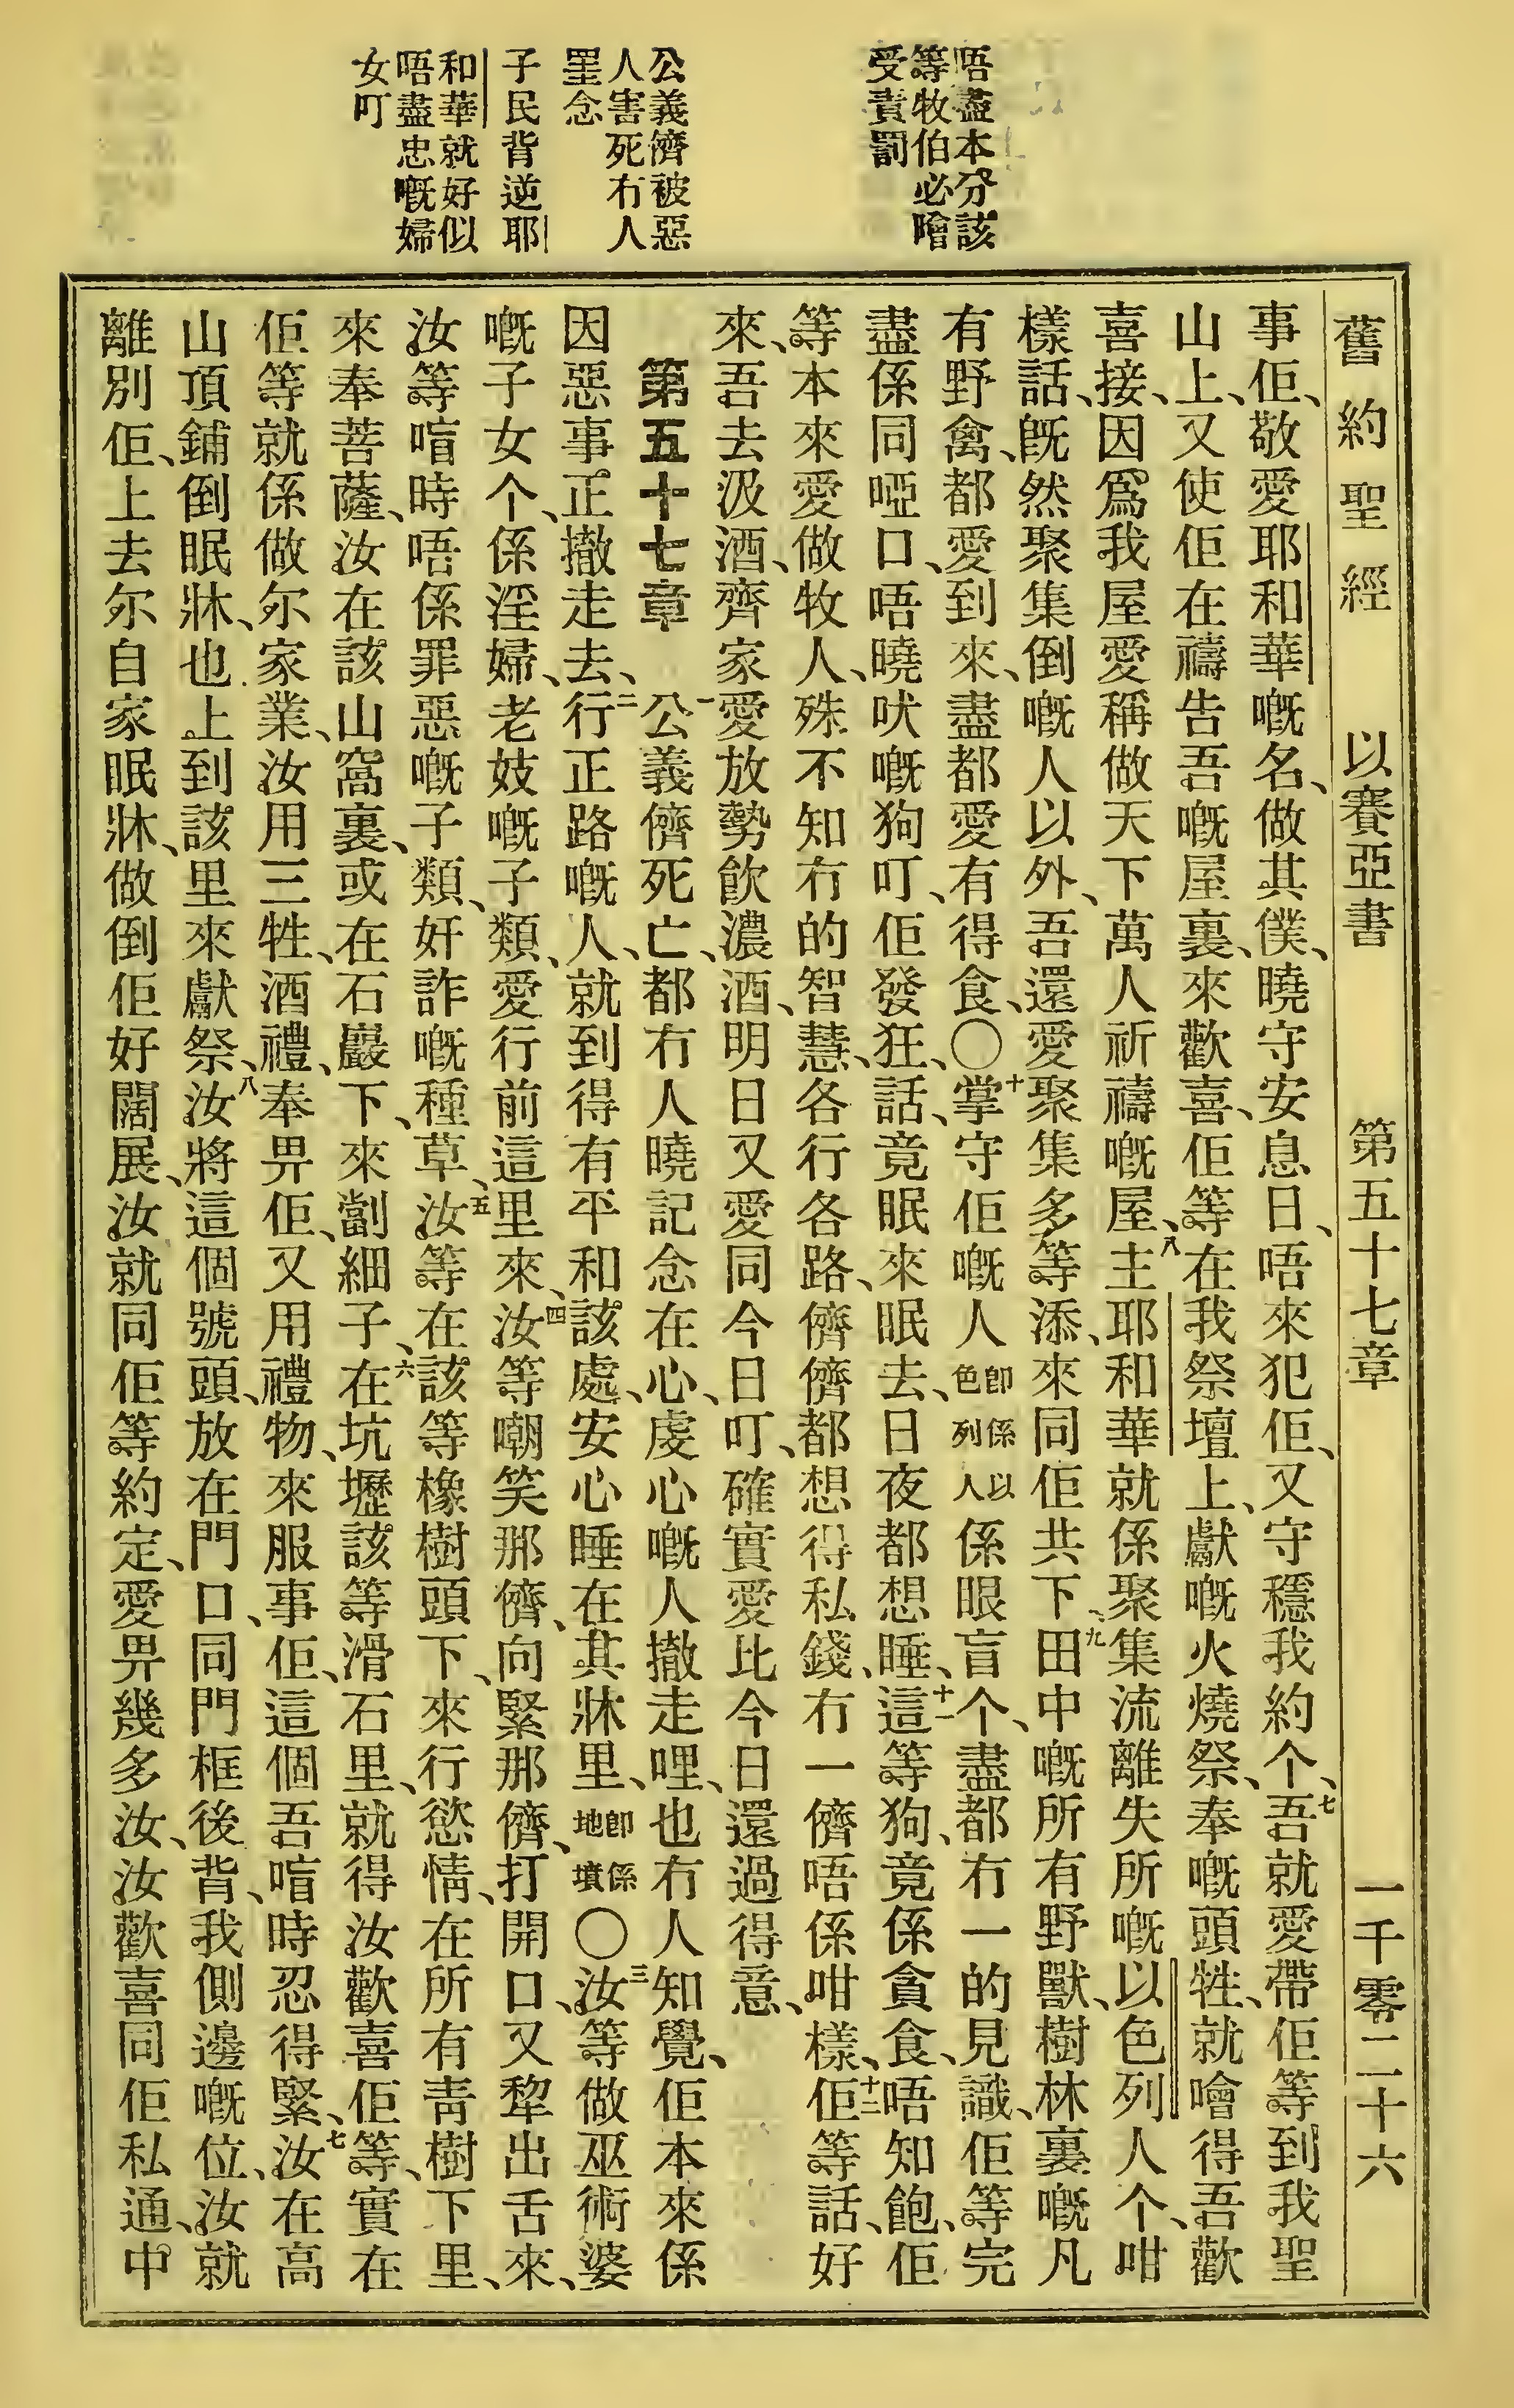 唔盡本分該
等牧伯必噲
受責罰
公義儕被惡
人害死冇人
罣念
子民背逆耶
和華就好似
唔盡忠嘅婦
女叮
舊約聖經 以賽亞書 第五十七章 一千零二十六
事佢、敬愛耶和華嘅名、做其僕、曉守安息日、唔來犯佢、又守穩我約个、七吾就愛帶佢等到我聖
山上、又使佢在禱告吾嘅屋裏、來歡喜、佢等在我祭壇上、獻嘅火燒祭、奉嘅頭牲、就噲得吾歡
喜接、因爲我屋愛稱做天下萬人祈禱嘅屋、八主耶和華就係聚集流離失所嘅以色列人个、咁
樣話、既然聚集倒嘅人以外、吾還愛聚集多等添、來同佢共下、九田中嘅所有野獸、樹林裏嘅凡
有野禽、都愛到來、盡都愛有得食、〇十掌守佢嘅人卽係以色列人係眼盲个、盡都冇一的見識、佢等完
盡係同啞口、唔曉吠嘅狗叮、佢發狂、話、竟眠來眠去、日夜都想睡、十一這等狗、竟係貪食、唔知飽、佢
等本來愛做牧人、殊不知冇的智慧、各行各路、儕儕都想得私錢、冇一儕唔係咁樣、十二佢等話、好
來、吾去汲酒、齊家愛放勢飮濃酒、明日又愛同今日叮、確實愛比今日還過得意、
第五十七章 一公義儕死亡、都冇人曉記念在心、虔心嘅人撤走哩、也冇人知覺、佢本來係
因惡事正撤走去、二行正路嘅人、就到得有平和該處、安心睡在其牀里、卽係墳地〇三汝等做巫術婆
嘅子女个、係淫婦、老妓嘅子類、愛行前這里來、四汝等嘲笑那儕、向緊那儕、打開口、又犂出舌來、
汝等喧時唔係罪惡嘅子類、奸詐嘅種草、五汝等在該等橡樹頭下、來行慾情、在所有靑樹下里、
來奉菩薩、汝在該山窩裏、或在石巖下、來劏細子、六在坑壢該等滑石里、就得汝歡喜佢等、實在
佢等就係做尔家業、汝用三牲、酒禮、奉畀佢、又用禮物、來服事佢、這個吾喧時忍得緊、七汝在高
山頂鋪倒眠牀、也上到該里來獻祭、八汝將這個號頭、放在門口、同門框後背、我側邊嘅位、汝就
離別佢、上去尔自家眠牀、做倒佢好闊展、汝就同佢等約定、愛畀幾多汝、汝歡喜同佢私通、中